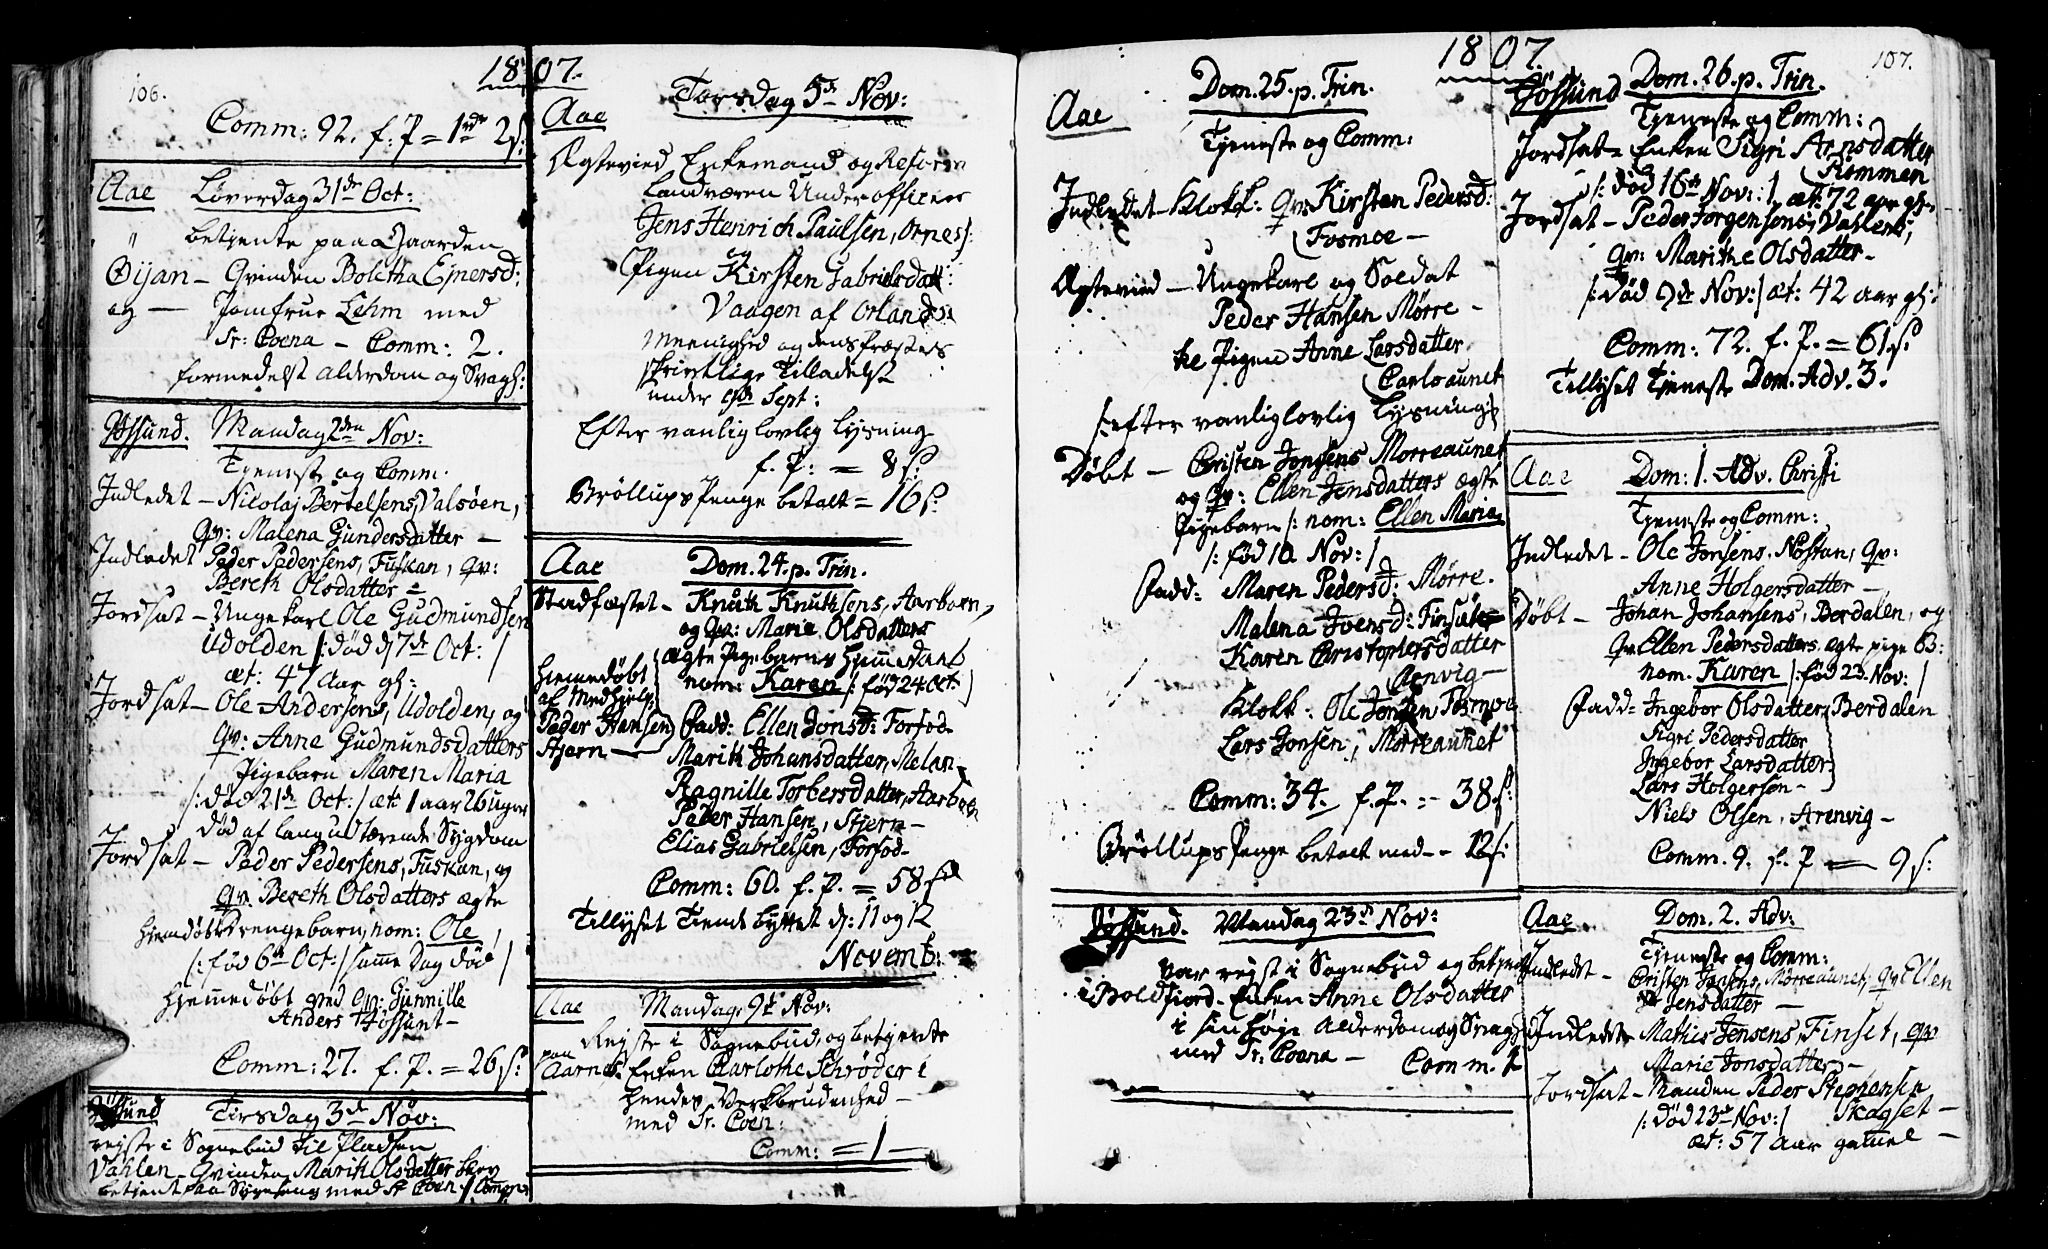 106.
1807.
Comm: 92. f. P = 1rdr 2s:
Aae Løverdag 31de Oct:
betjente paa Gaarden
Øijan - Qvinden Boletha Ejnersd:
og - Jomfrue Lehm med
Sr: Coena - Comm: 2.
formedelst Alderdom og Svagh:
Jøssund. Mandag 2den Nov:
Tjeneste og Comm.
Indledet - Nicolaj Bertelsens, Valsøen,
Qv: Malena Gundersdatter -
Indledet Peder Pedersens, Fuskan, qv:
Bereth Olsdatter -
Jordsat - Ungekarl Ole Gudmundsen
Udolden /: død d: 7de Oct: /
æt: 47 Aar gl:
Jordsat - Ole Andersens, Udolden, og
Qv: Anne Gudmundsdatters
Pigebarn Maren Maria
/: død 21de Oct: / æt: 1 aar 26 uger
død af langudtærende Sygdom
Jordsat - Peder Pedersens, Fuskan, og
qv. Bereth Olsdatters ægte
hiemdøbt Drengebarn, nom: Ole
/: fød 6te Oct: / samme Dag død /
Hjemmedøbt ved Qv: Gunnille
Anders Jøssunt -
Comm: 27. f. P. = 26 s:
Jøssund Tirsdag 3de Nov:
rejste i Sognebud til Pladsen
Vahlen Qvinden Marith Olsdatter
betjent paa Sygeseng med Sr Coen: / Comm:
Torsdag 5te Nov:
Aae
Ægtevied Enkemand og Reform
Landværn Underofficeer
Jens Henrich Paulsen, Ornes
Pigen Kirsten Gabrielsdatt:
Vaagen af Orland
Meenighed og dens Præstes
skrivtlige Tilladelse
under 9de Sept:
Efter vanlig lovlig Lysning
f. P: = 8 s:
Brøllups Penge betalt = 16 s:
Aae Dom. 24. p. Trin.
Stadfæstet - Knuth Knuthsens, Aarboen,
og Qv: Marie Olsdatters
ægte Pigebarns hjemmedaab
nom: Karen /: fød 24. Oct: /
Hiemedøbt
af Medhjelp:
Peder Hansen
Stjern
Fadd: Ellen Jonsd: Forfod
Marith Johansdatter, Melan
Ragnille Torbersdatter, Aarboen
Peder Hansen, Stjern -
Elias Gabrielsen, Forfod -
Comm: 60. f. P. = 58 s
Tillyset Tiende byttet d: 11 og 12
Novemb:
Aae Mandag 9de Nov:
Rejste i Sognebud, og betjente
paa Aarnes. Enken Charlothe Schrøder i
hendes Verkbrudenhed -
med Sr. Coen:
Comm: = 1 -
1807.
107.
Dom. 25. p. Trin.
Aae
Tjeneste og Comm:
Indledet - Klokk: Qv: Kirsten Pedersd:
Fosmoe -
Ægteviet - Ungekarl og Soldat
Peder Hansen Mørre -
ke Pigen Anne Larsdatter
Carlsaunet
/: efter vanlig lovlig Lysning /
Døbt - Christen Jonsens Morreaunet
og Qv: Ellen Jensdatters ægte
Pigebarn /: nom: Ellen Maria
/: fød 10 Nov: /
Fadd: Maren Pedersd: Mørre.
Malena Ivensd: Finsæter
Karen Christophersdatter
Arnvig -
Klokk: Ole Jonsen Fosmoe
Lars Jonsen, Mørreaunet
Comm: 34. f. P. = 38 s:
Brøllups Penge betalt med - 12 s:
Jøssund. Mandag 23de Nov:
var rejst i Sognebud og betjent
i Boldfiord - Enken Anne Olsdatter
i sin høje Alderdom og Svaghed
med Sr: Coena - Comm. 1
Jøssund Dom. 26. p. Trin.
Tjeneste og Comm:
Jordsat - Enken Sigri Arnsdatter
Rømmen
/: død 16te Nov: / æt: 72 aar gl:
Jordsat - Peder Jorgensens, Vahlens,
qv: Marithe Olsdatter -
/: død 9de Nov: / æt: 42 aar gl:
Comm: 72. f. P. = 61 s:
Tillyset Tjeneste Dom. Adv. 3.
Aae Dom: 1. Adv. Christi
Tjeneste og Comm:
Indledet - Ole Jonsens, Nostan, qv:
Anne Holgersdatter -
Døbt - Johan Johansens, Berdalen, og
qv Ellen Pedersdatters ægte pige B:
nom. Karen /: fød 23. Nov: /
Fadd: Ingebor Olsdatter, Berdalen
Sigri Pedersdatter
Ingebor Larsdatter
Lars Holgersen -
Niels Olsen, Arenvig -
Comm. 9. f. P = 9 s:
Aae Dom. 2. Adv:
Tjeneste og Comm:
Indledt - Cristen Jonsens, Mørreaunet, qv Ellen
Jensdatter -
Indledt - Mathis Jensens, Finset, qv
Marie Jonsdatter -
Jordsat - Manden Peder Stephensen
/: død 23de Nov: / Skagset -
æt: 57 Aar gamel -